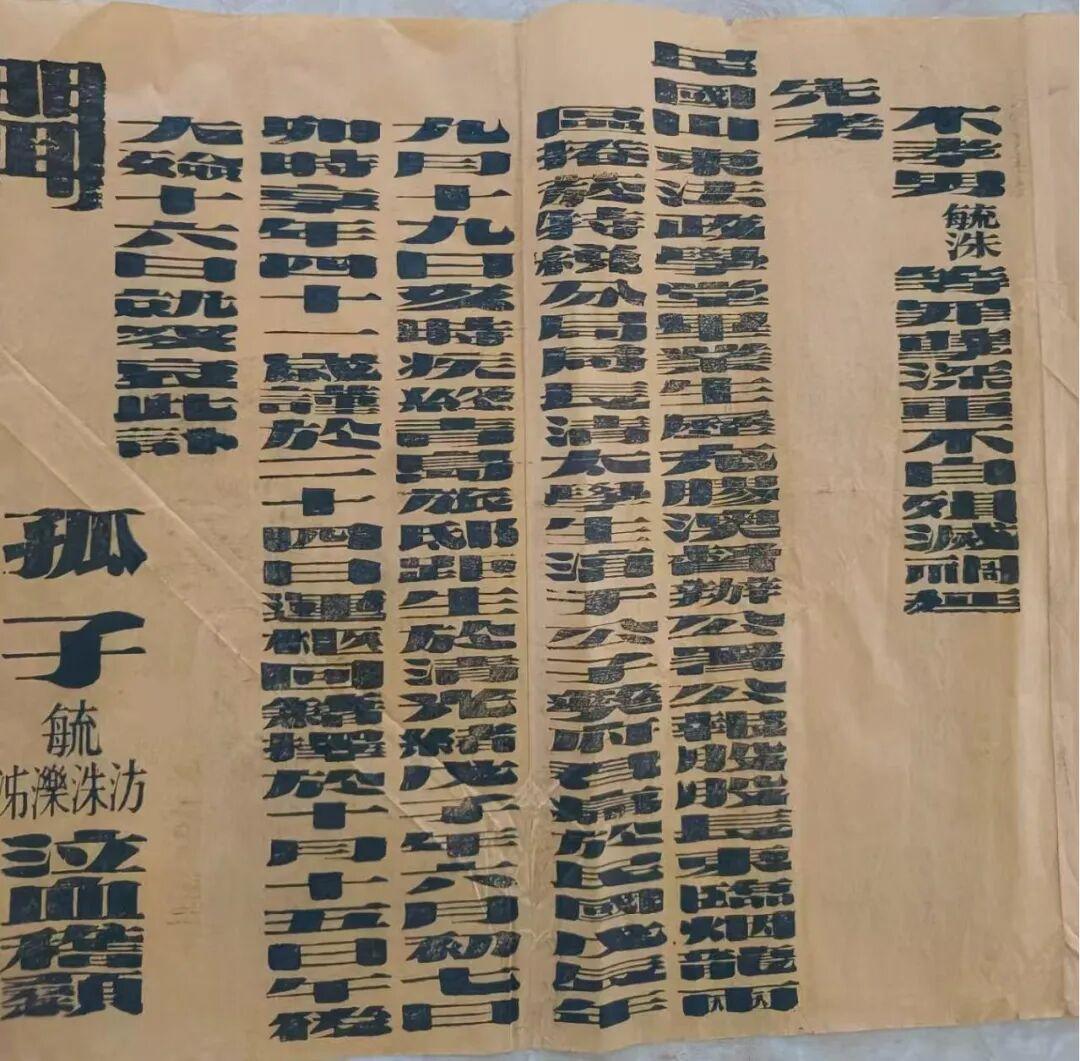 不孝男毓洙等罪孽深重不自殞滅禍延
先考
民國山東法政學堂畢業生歷充膠澳督辦公署公報股股長東臨烟龍兩
區捲菸特稅分局局長清太學生淳于公子府君痛於民國戊辰年
九月十九日亥時疾終青島旅邸距生於清光緒戊子年六月初七日
卯時享年四十一歲謹於二十四日運柩回籍擇於十月十五日午後
大殮十六日就發哀此訃
聞
孤子毓汸洙濼泲泣血稽顙